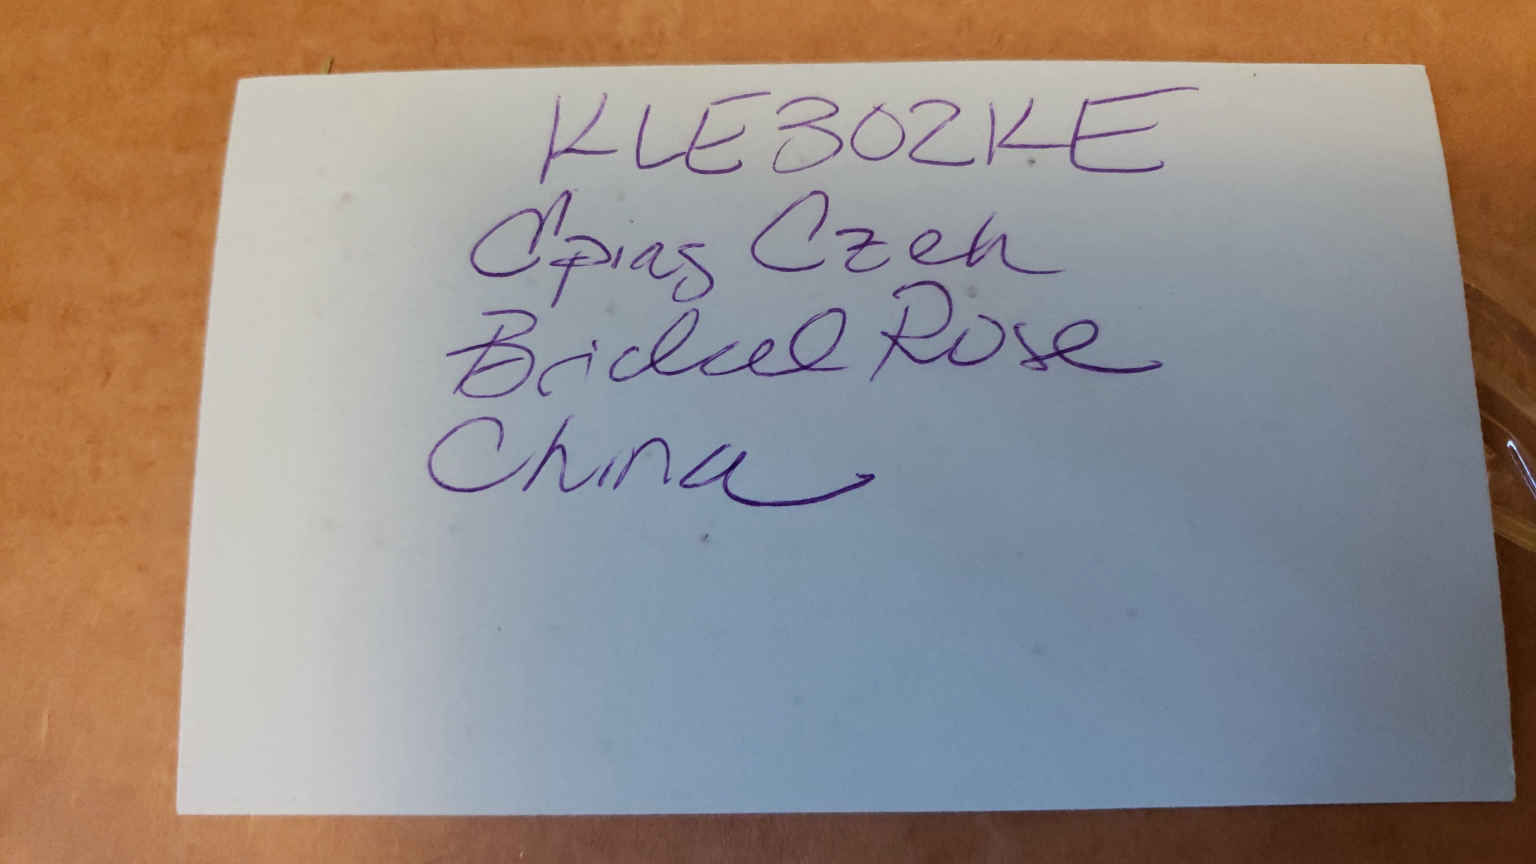 KLEBOZKE
Czech
Bridal Rose
China